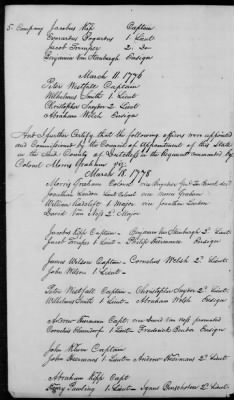 5. Company Jacobus Kip Captain
Evenardus Bogardus 1 Lieut
Jacob Tremper 2. Do
Benjamin Van Steinburgh Ensign
March 11. 1776
Peter Westfall Captain
Wilhelmus Smith 1 Lieut
Christopher Snyder 2 Lieut
Abraham Welch Ensign
And I further Certify that the following officers were appointed
and Commissioned by the Council of Appointment of this State
in the said County of Dutchess in the Regiment commanded by
Colonel Morris Graham viz:
March 18. 1778
Morris Graham Colonel
Jonathan Landon Lieutenant Colonel vice Morris Graham
William Radclift 1. Major vice Jonathan Landon
David Van Ness 2d Major
Jacobus Kipp Captain - Benjamin Van Steinburgh 2d Lieut:
Jacob Tremper 1 Lieut - Philip Feerman Ensign
James Wilson Captain - Cornelius Welch 2d Lieut
John Wilson 1 Lieut -
Peter Westfall Captain - Christopher Snyder 2d Lieut:
Wilhelmus Smith 1 Lieut - Abraham Welch Ensign
Andrew Heermans Capt: vice David Van Ness promoted
Cornelius Elmendorph 1 Lieut - Frederick Ensign
John Klum Captain
John Heermans 1 Lieut - Andrew Heermans 2d Lieut:
Abraham Kipp Capt
Levy Pawling 1 Lieut - 2d Lieut: